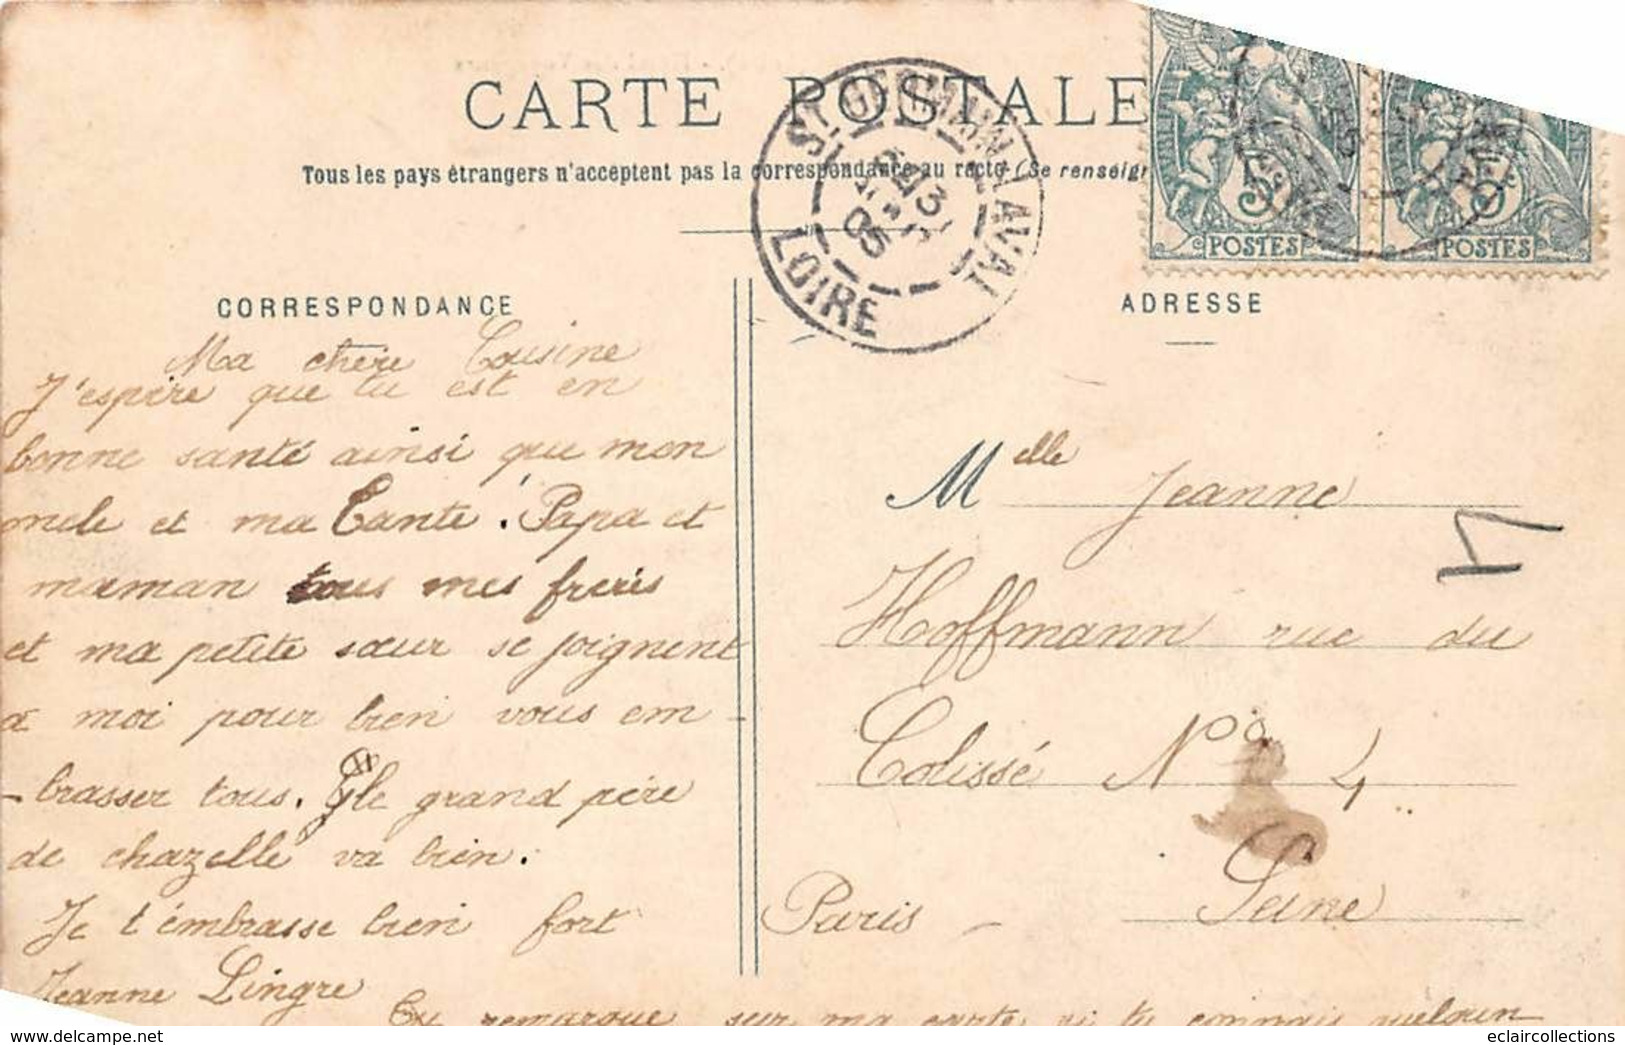 CARTE POSTALE
Tous les pays étrangers n'acceptent pas la correspondance au recto (Se renseign
ST GERMAIN LAVAL
05
LOIRE
5
POSTES
5
POSTES
CORRESPONDANCE
Ma chère Cousine
J'espère que tu est en
bonne santé ainsi que mon
oncle et ma Tante. Papa et
maman tous mes frères
et ma petite sœur se joignent
a moi pour bien vous em-
-brasser tous. le grand père
de chazelle va bien.
Je t'embrasse bien fort
Jeanne Lingre
Tu remarque sur ma carte si tu connais quelqun
ADRESSE
Melle Jeanne
Hoffmann rue du
Colissé No 4
Seine
Paris -
www.delcampe.net
eclaircollections